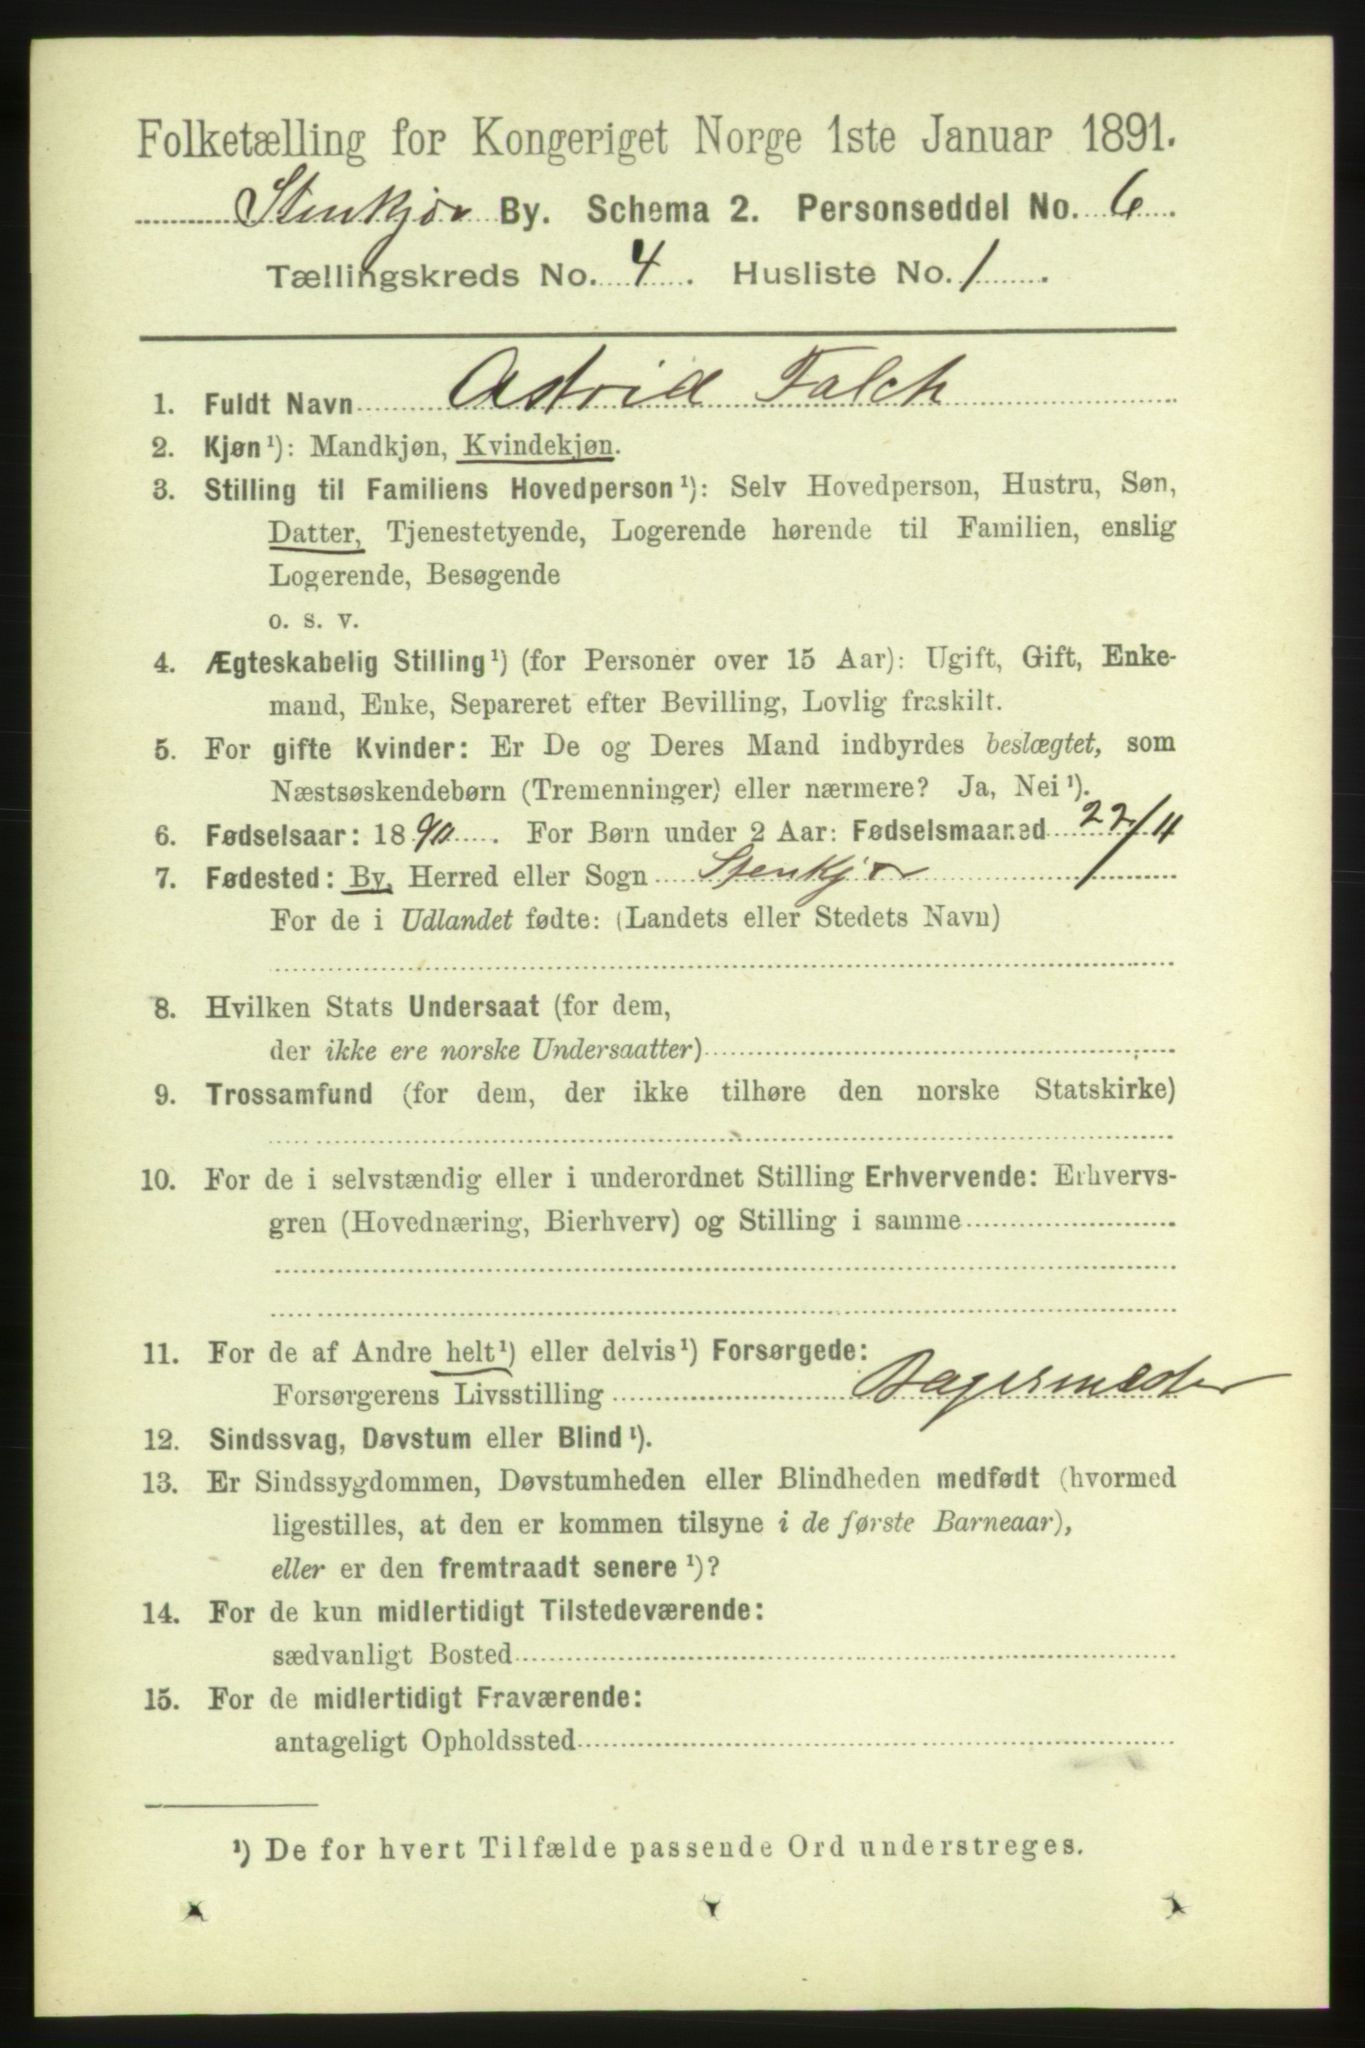 Folketælling for Kongeriget Norge 1ste Januar 1891.
Stenkjør By. Schema 2. Personseddel No. 6.
Tællingskreds No. 4. Husliste No. 1.
1. Fuldt Navn Astrid Falch
2. Kjøn¹): Mandkjøn, Kvindekjøn.
3. Stilling til Familiens Hovedperson¹): Selv Hovedperson, Hustru, Søn,
Datter, Tjenestetyende, Logerende hørende til Familien, enslig
Logerende, Besøgende
o. s. v.
4. Ægteskabelig Stilling¹) (for Personer over 15 Aar): Ugift, Gift, Enke-
mand, Enke, Separeret efter Bevilling, Lovlig fraskilt.
5. For gifte Kvinder: Er De og Deres Mand indbyrdes beslægtet, som
Næstsøskendebørn (Tremenninger) eller nærmere? Ja, Nei¹).
6. Fødselsaar: 1890. For Børn under 2 Aar: Fødselsmaaned 22/11
7. Fødested: By, Herred eller Sogn Stenkjør
For de i Udlandet fødte: (Landets eller Stedets Navn)
8. Hvilken Stats Undersaat (for dem,
der ikke ere norske Undersaatter)
9. Trossamfund (for dem, der ikke tilhøre den norske Statskirke)
10. For de i selvstændig eller i underordnet Stilling Erhvervende: Erhvervs-
gren (Hovednæring, Bierhverv) og Stilling i samme
11. For de af Andre helt¹) eller delvis¹) Forsørgede:
Forsørgerens Livsstilling Bagermester
12. Sindssvag, Døvstum eller Blind¹).
13. Er Sindssygdommen, Døvstumheden eller Blindheden medfødt (hvormed
ligestilles, at den er kommen tilsyne i de første Barneaar),
eller er den fremtraadt senere¹)?
14. For de kun midlertidigt Tilstedeværende:
sædvanligt Bosted
15. For de midlertidigt Fraværende:
antageligt Opholdssted
¹) De for hvert Tilfælde passende Ord understreges.